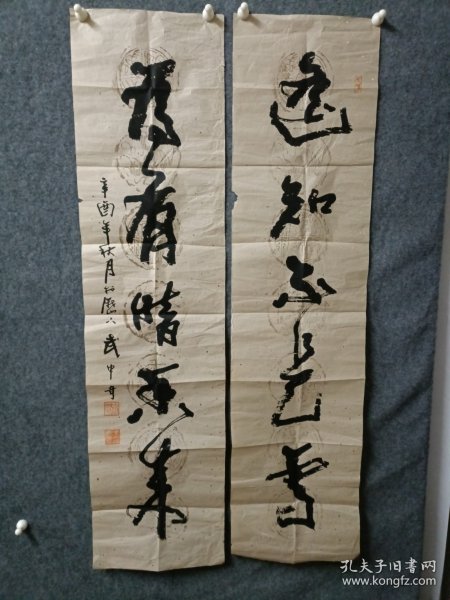 遥知不是雪
为有暗香来
辛酉年秋月
武中奇
孔夫子旧书网
www.kongfz.com